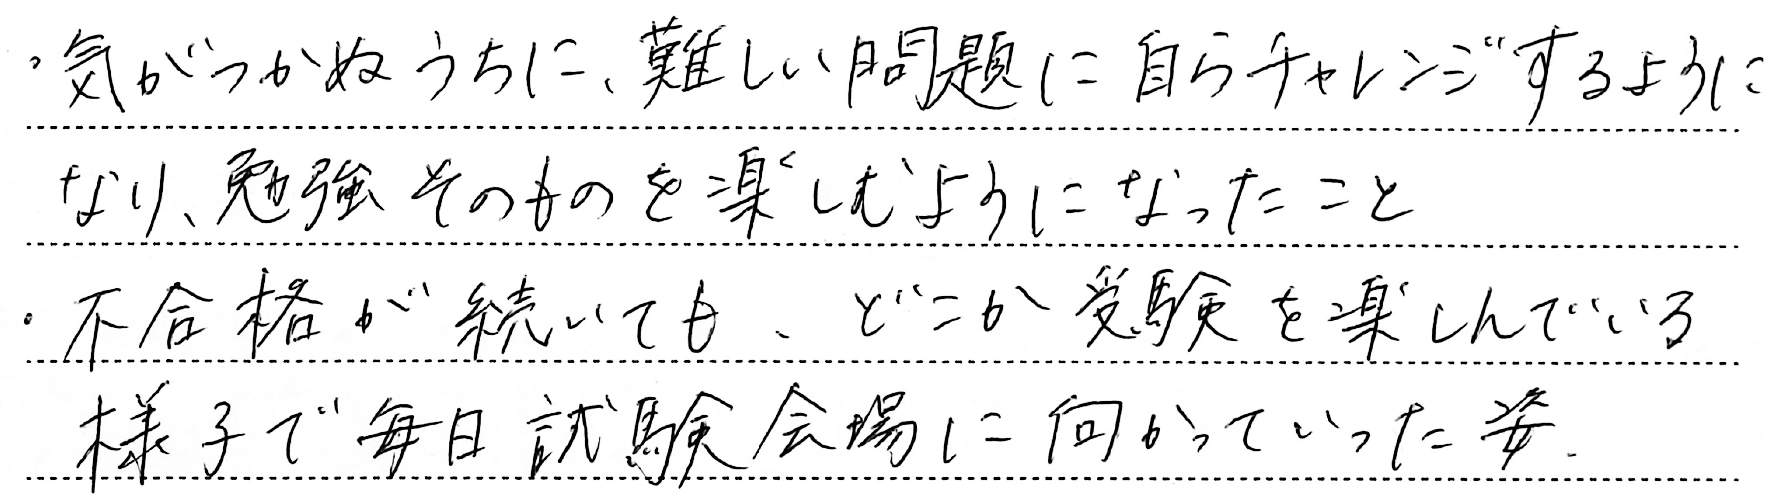 ・気がつかぬうちに、難しい問題に自らチャレンジするように
なり、勉強そのものを楽しむようになったこと
・不合格が続いても、どこか受験を楽しんでいる
様子で毎日試験会場に向かっていった姿.